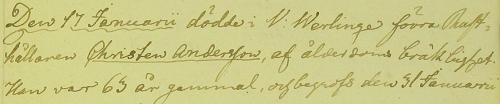 Den 17 Januarii dödde i V. Werlinge förra Rust-
hållaren Christen Andersson, af ålderdoms bräklighet.
Han var 63 år gammal, och begrofs den 31 Januarii